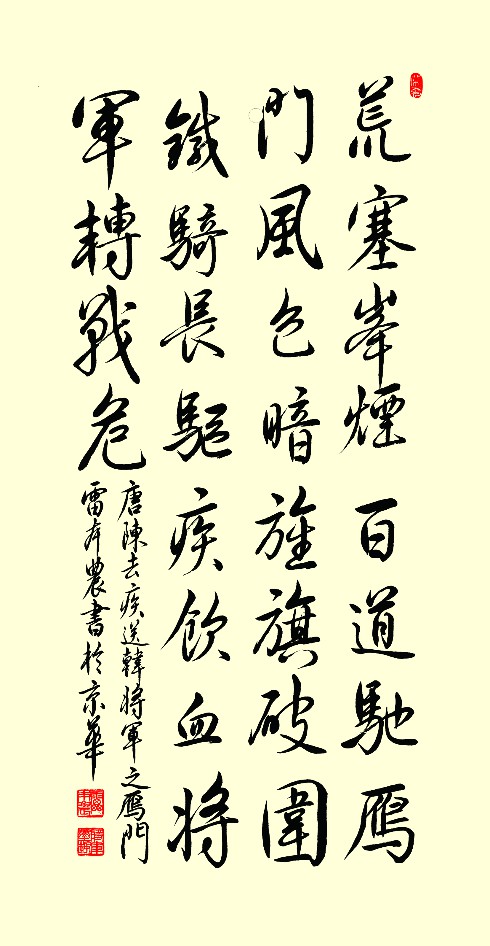 荒塞峯煙百道馳鴈
門風色暗旌旗破圍
鐵騎長驅疾飲血將
軍轉戰危
唐陳去疾送韓將軍之鴈門
雷本農書於京華